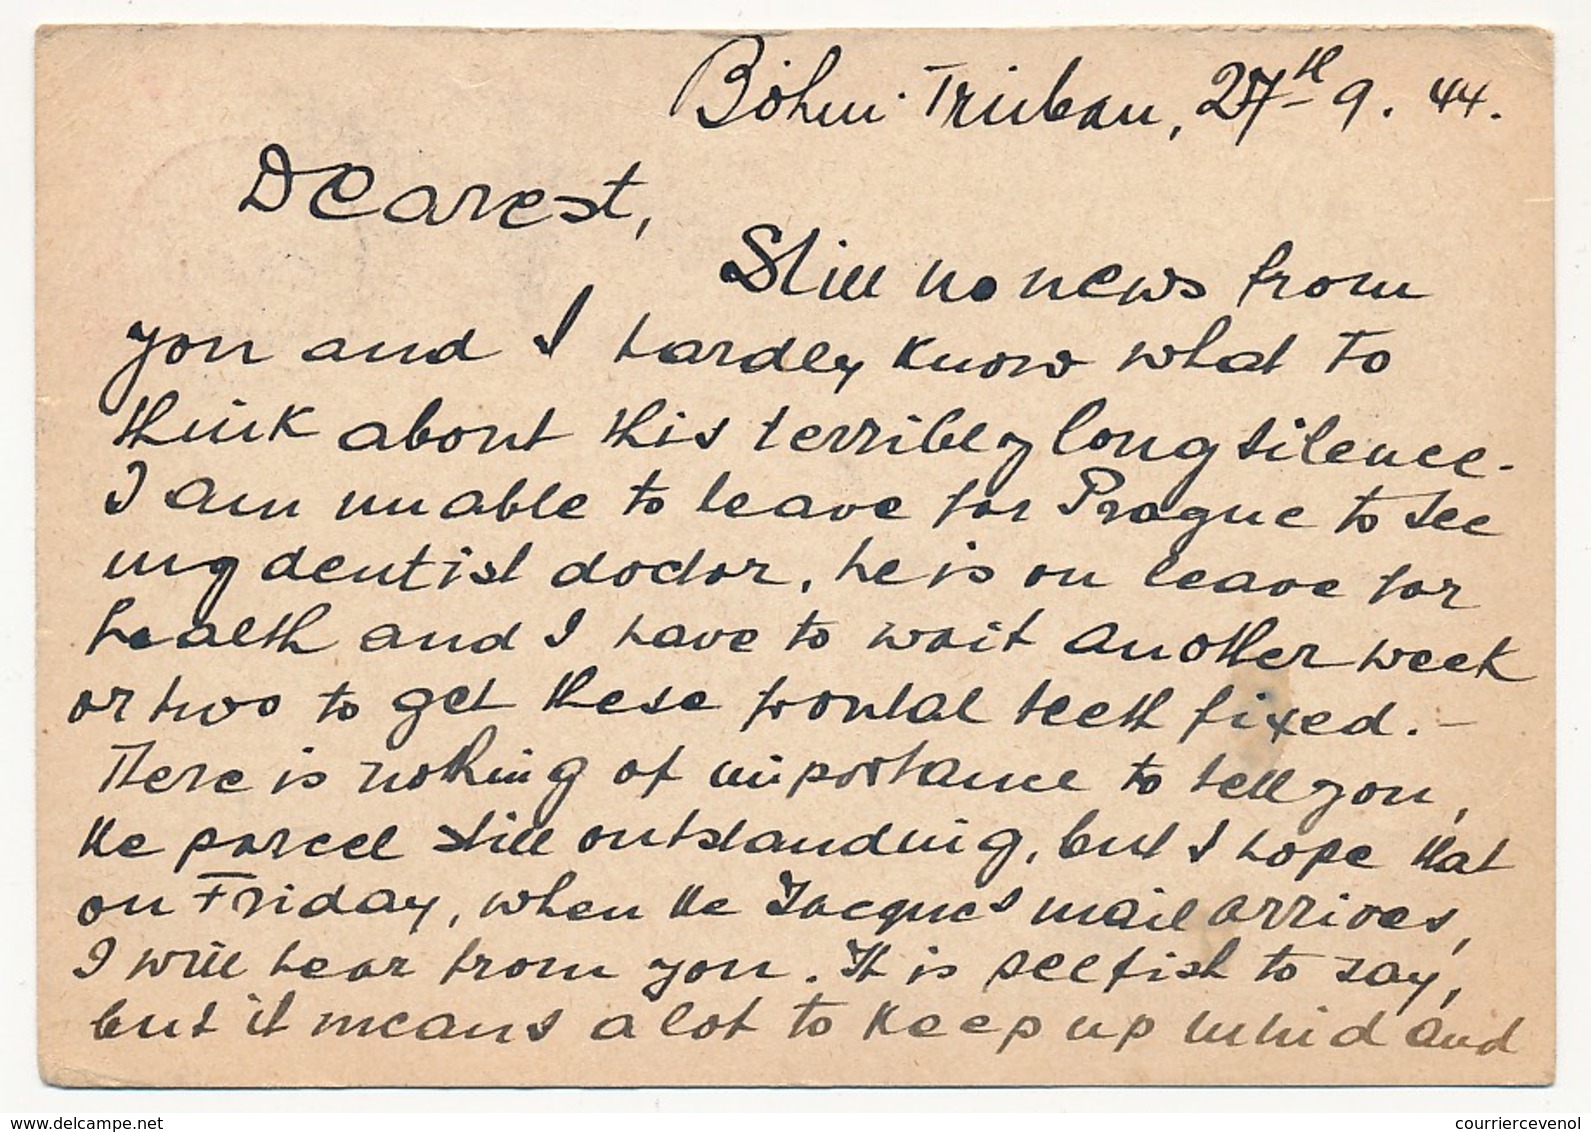 Böhm. Trübau, 27th 9. 44.
Dearest,
Still no news from
you and I hardly know what to
think about this terribly long silence.
I am unable to leave for Prague to see
my dentist doctor, he is on leave for
health and I have to wait another week
or two to get these frontal teeth fixed. -
There is nothing of importance to tell you,
the parcel still outstanding, but I hope that
on Friday, when the Jacques mail arrives,
I will hear from you. It is selfish to say,
but it means a lot to keep up mind and
www.delcampe.net
courriercevenol